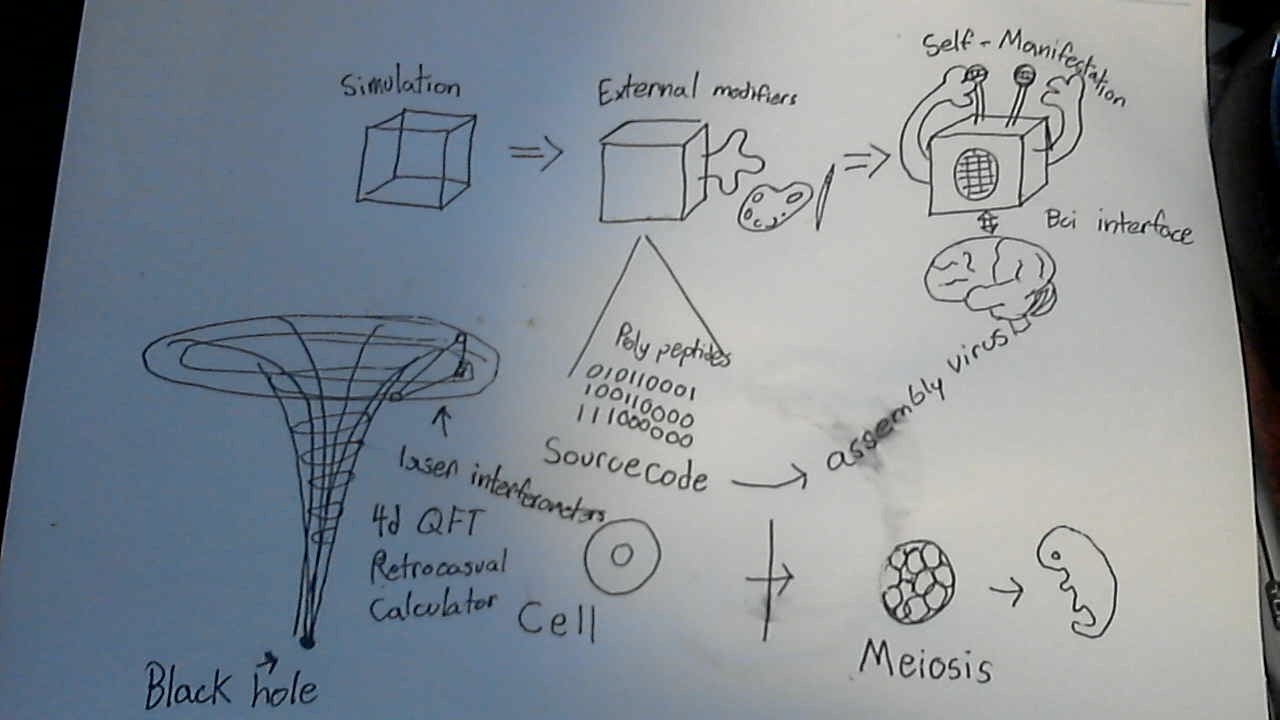 Simulation
External modifiers
Self-Manifestation
Bci interface
Poly peptides
010110001
100110000
111000000
Sourcecode
assembly virus
laser interferometers
4d QFT
Retrocasual
Calculator
Cell
Meiosis
Black hole